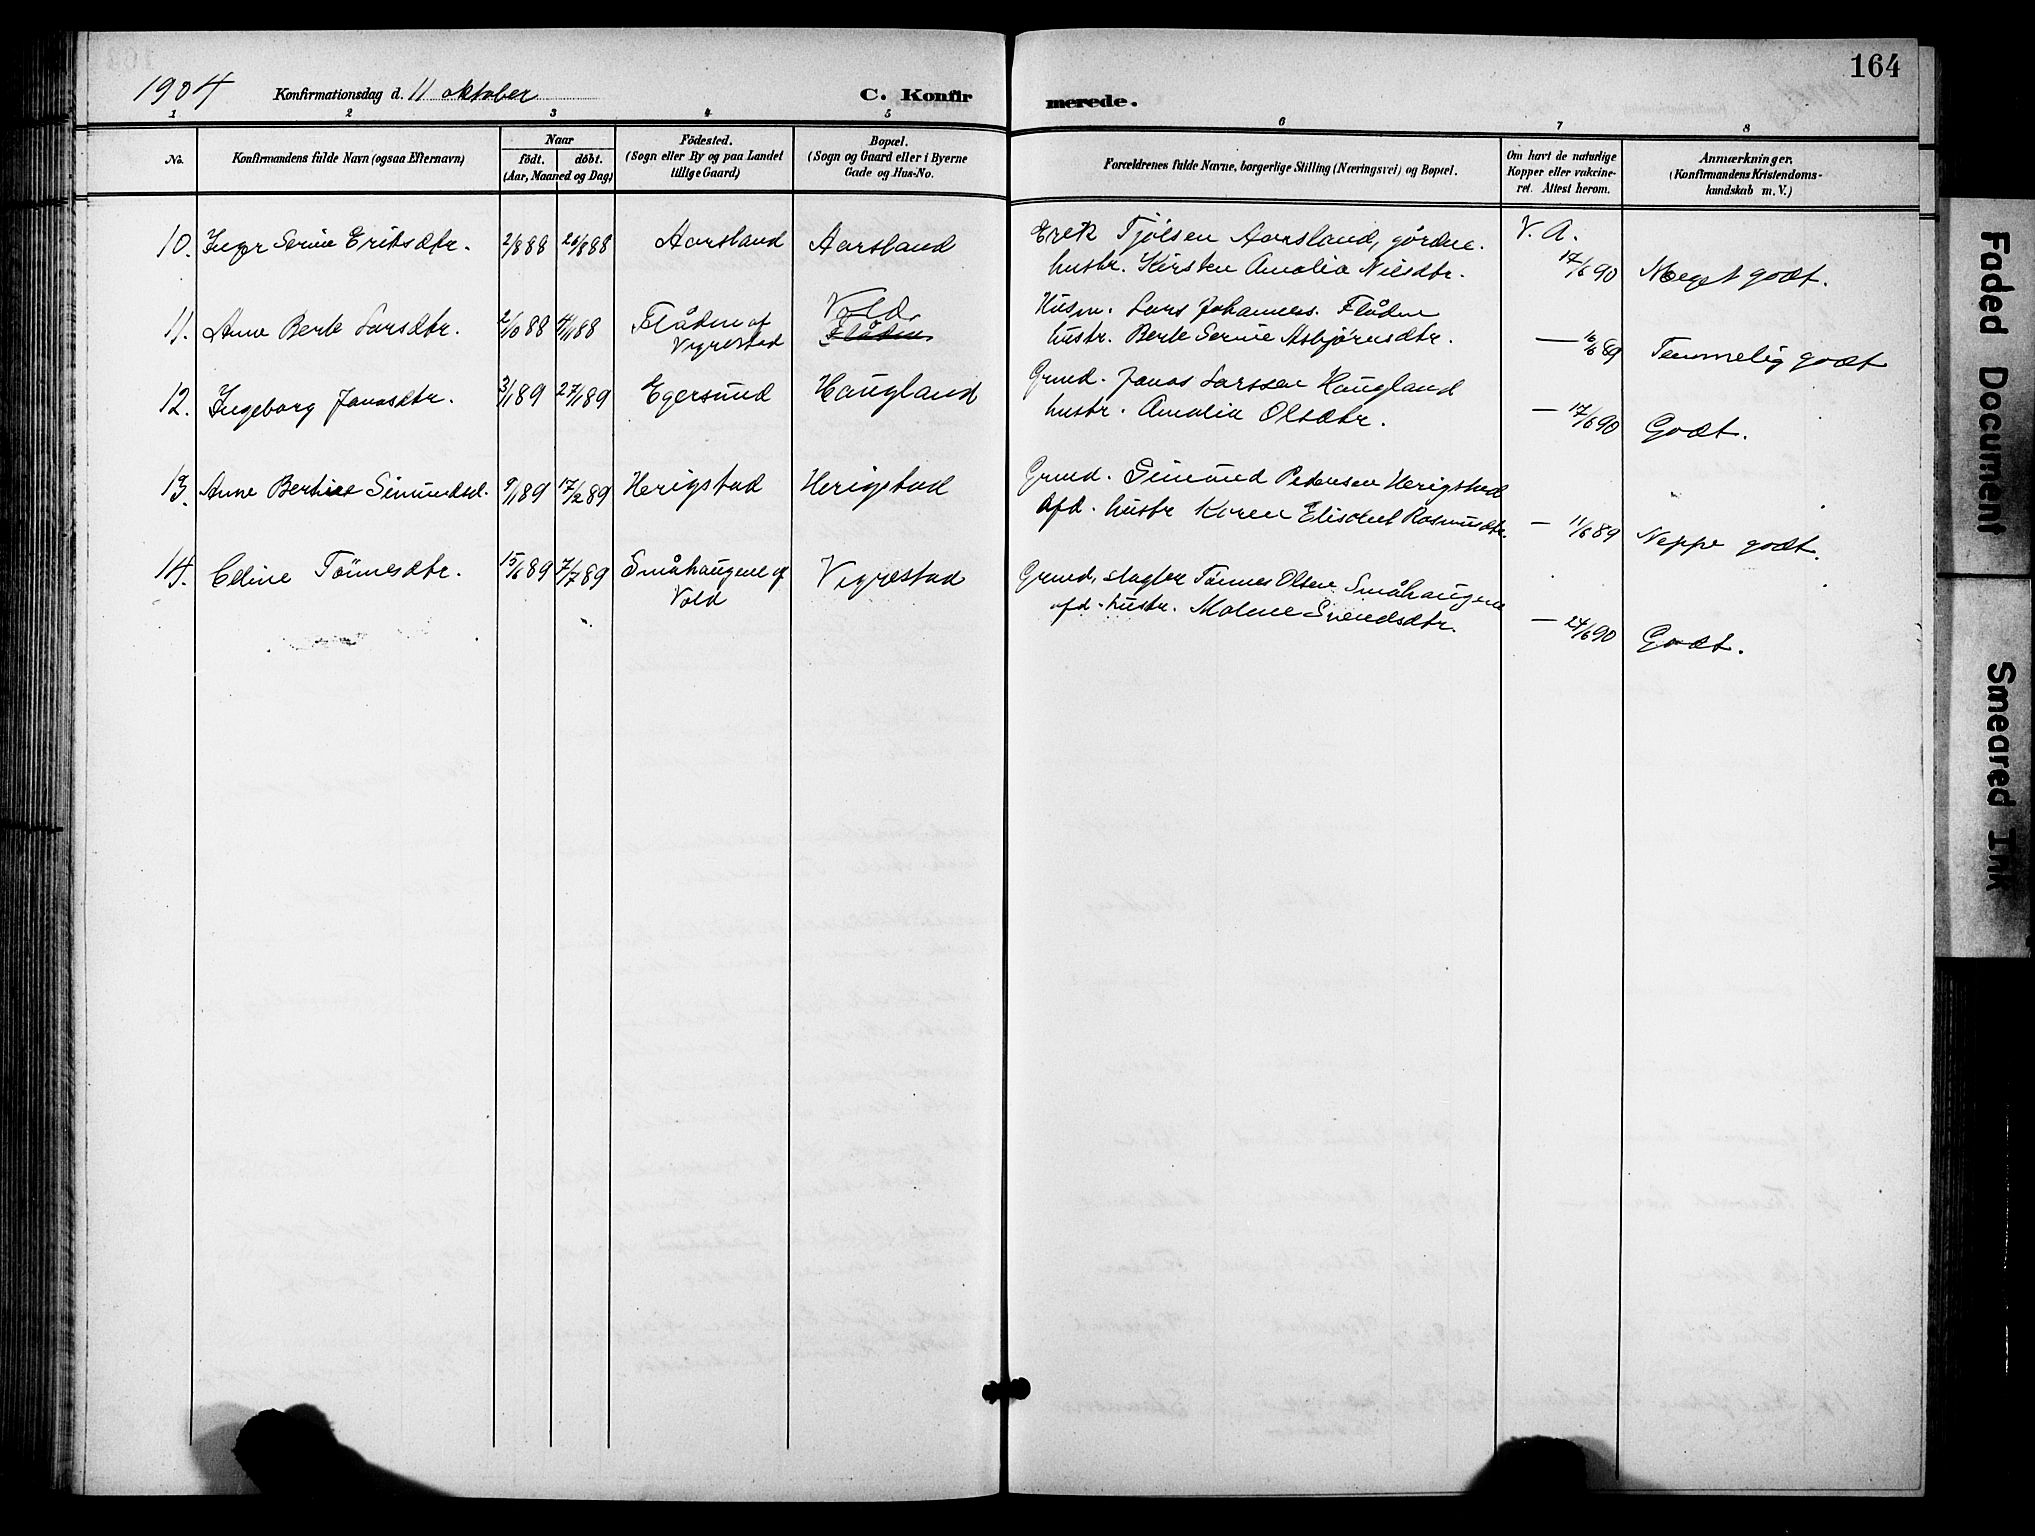 164
1904 Konfirmationsdag d. 11 oktober
C. Konfirmerede.
1 2 3 4 5 6 7 8
No.
Konfirmandens fulde Navn (ogsaa Efternavn)
Naar
födt. döbt.
(Aar, Maaned og Dag)
Födested.
(Sogn eller By og paa Landet
tillige Gaard)
Bopæl.
(Sogn og Gaard eller i Byerne
Gade og Hus-No.
Forældrenes fulde Navne, borgerlige Stilling (Næringsvei) og Bopæl.
Om havt de naturlige
Kopper eller vakcine-
ret. Attest herom.
Anmærkninger.
(Konfirmandens Kristendoms-
kundskab m. V.)
10. Inger Serine Eriksdtr. 2/8 88 26/8 88 Aarsland Aarsland
Erik Tjölsen Aarsland, gårdm.
hustr. Kirsten Amalia Nilsdtr.
V. A.
17/6 90 Meget godt.
11. Anne Berte Larsdtr. 2/10 88 4/11 88 Flåden af
Vigrestad
Vold
Flåden
Husm. Lars Johannes. Flåden
hustr. Berte Serine Asbjörnsdtr.
— 16/6 89 Temmelig godt
12. Ingeborg Jonasdtr. 3/1 89 27/1 89 Egersund Haugland
Grmd. Jonas Larssen Haugland
hustr. Amalia Olsdtr.
— 17/6 90 Godt.
13. Anne Bertine Simundsd. 9/1 89 17/2 89 Herigstad Herigstad
Grmd. Simund Pedersen Herigstad
Afd. hustr Karen Elisabet Rasmusdtr.
— 11/6 89 Neppe godt.
14. Eline Tönnesdtr. 15/6 89 7/7 89 Småhaugene af
Vold
Vigrestad
Grmd, slagter Tönnes Olsen Småhaugene
afd. hustr. Malene Svendsdtr.
— 24/6 90 Godt.
Faded Document
Smeared Ink